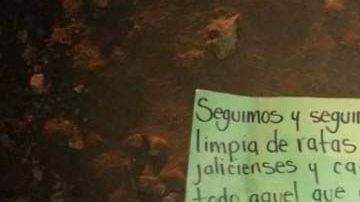 Seguimos y seguim
limpia de ratas
jalicienses y ca
todo aquel que